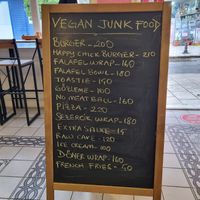 VEGAN JUNK FOOD
BURGER - 200
HAPPY CHICK BURGER - 210
FALAFEL WRAP - 140
FALAFEL BOWL - 180
TOASTIE - 150
GÖZLEME - 100
NO MEAT BALL - 160
PIZZA - 200
SEBZELİ WRAP - 180
EXTRA SAUCE - 15
RAW CAKE - 120
ICE CREAM - 100
DÖNER WRAP - 160
FRENCH FRIES - 90